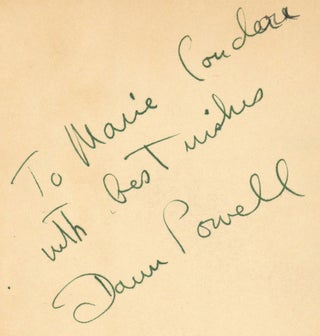 To Marie
with best wishes
Dawn Powell